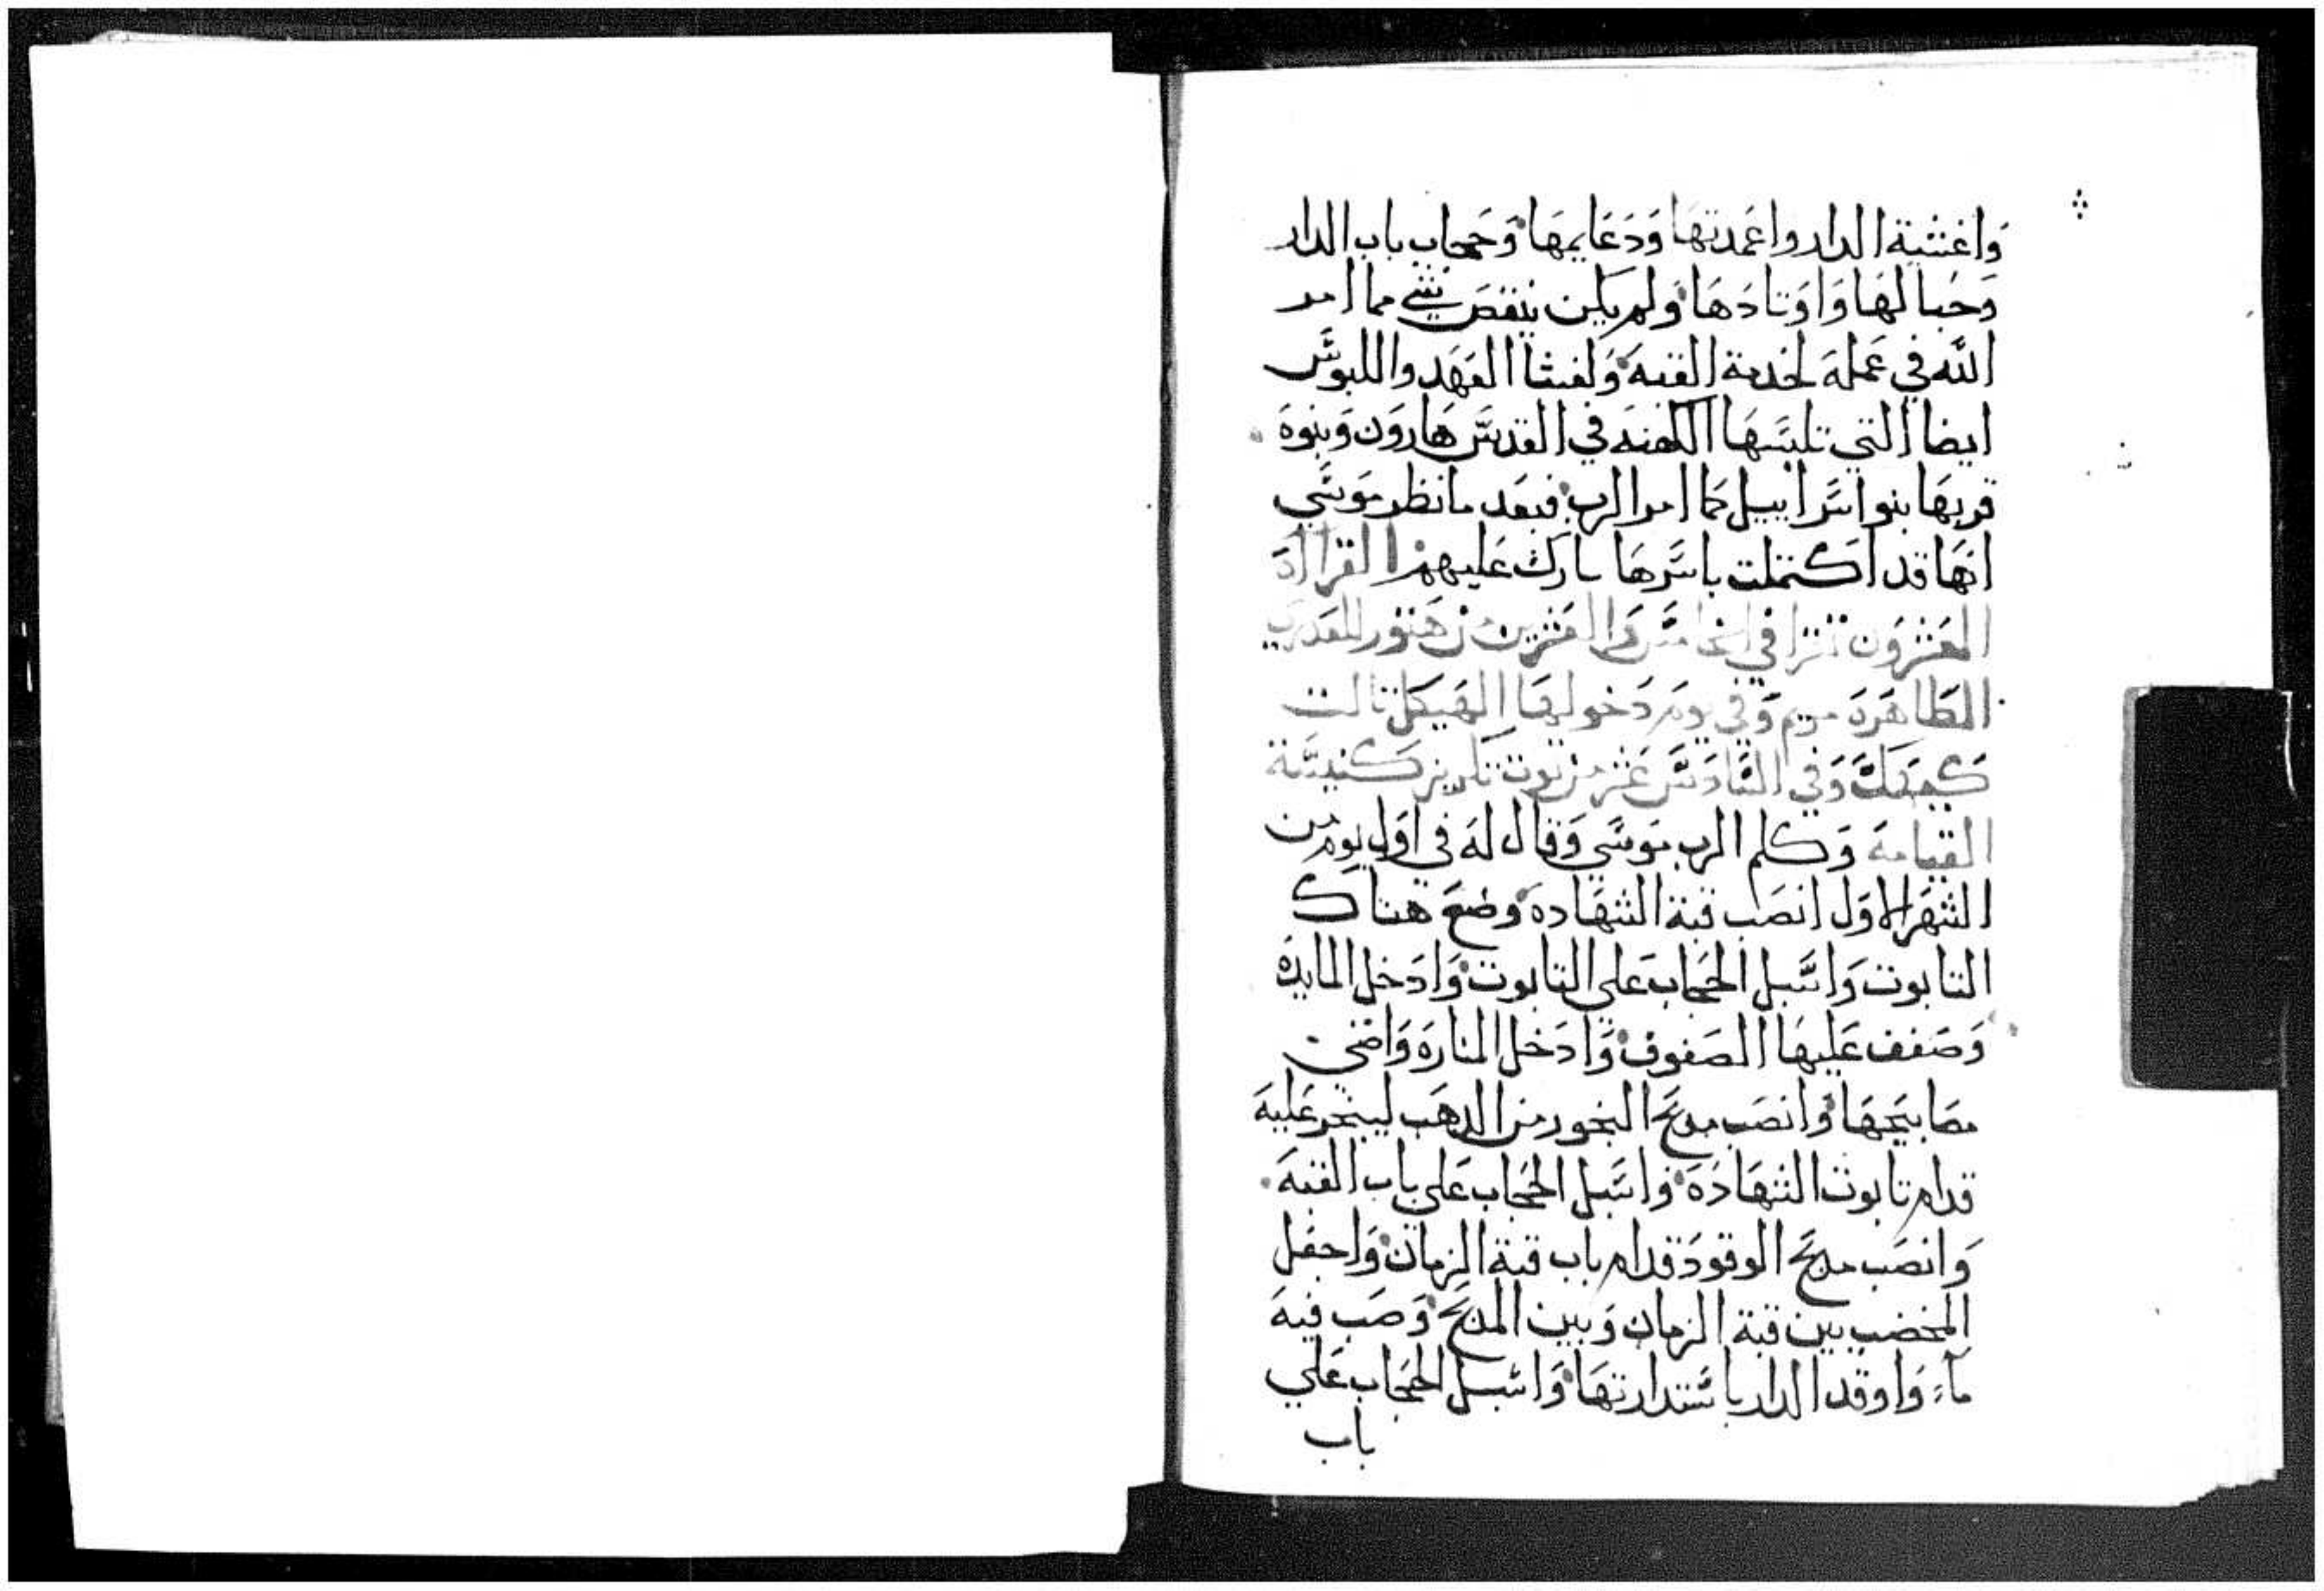 واغشية الدار واعمدتها ودعايمها وحجاب باب الدار
وحبالها واوتادها ولم يكن ينقص شي مما امر
الله في عمله لخدمة القبه ولغشا العهد واللبوس
ايضا التي تلبسها الكهنه في القدس هارون وبنوه
قربها بنوا اسراييل كما امر الرب فبعد ما نظر موسي
انها قد اكتملت باسرها بارك عليهم القراه
العشرون تقرا في الخامس والعشرين من هتور للعدري
الطاهره مريم وفي يوم دخولها الهيكل تالت
كيهك وفي السادس عشر من توت تكريز كنيسة
القيامه وكلم الرب موسي وقال له في اول يوم من
الشهر الاول انصب قبة الشهاده وضع هناك
التابوت واسبل الحجاب علي التابوت وادخل المايده
وصفف عليها الصفوف وادخل المناره واضي
مصابيحها وانصب مدبح البخور من الدهب ليبخر عليه
قدام تابوت الشهاده واسبل الحجاب علي باب القبه
وانصب مدبح الوقود قدام باب قبة الزمان واجعل
المخضب بين قبة الزمان وبين المدبح وصب فيه
ماء واوقد الدار باستدارتها واسبل الحجاب علي
باب